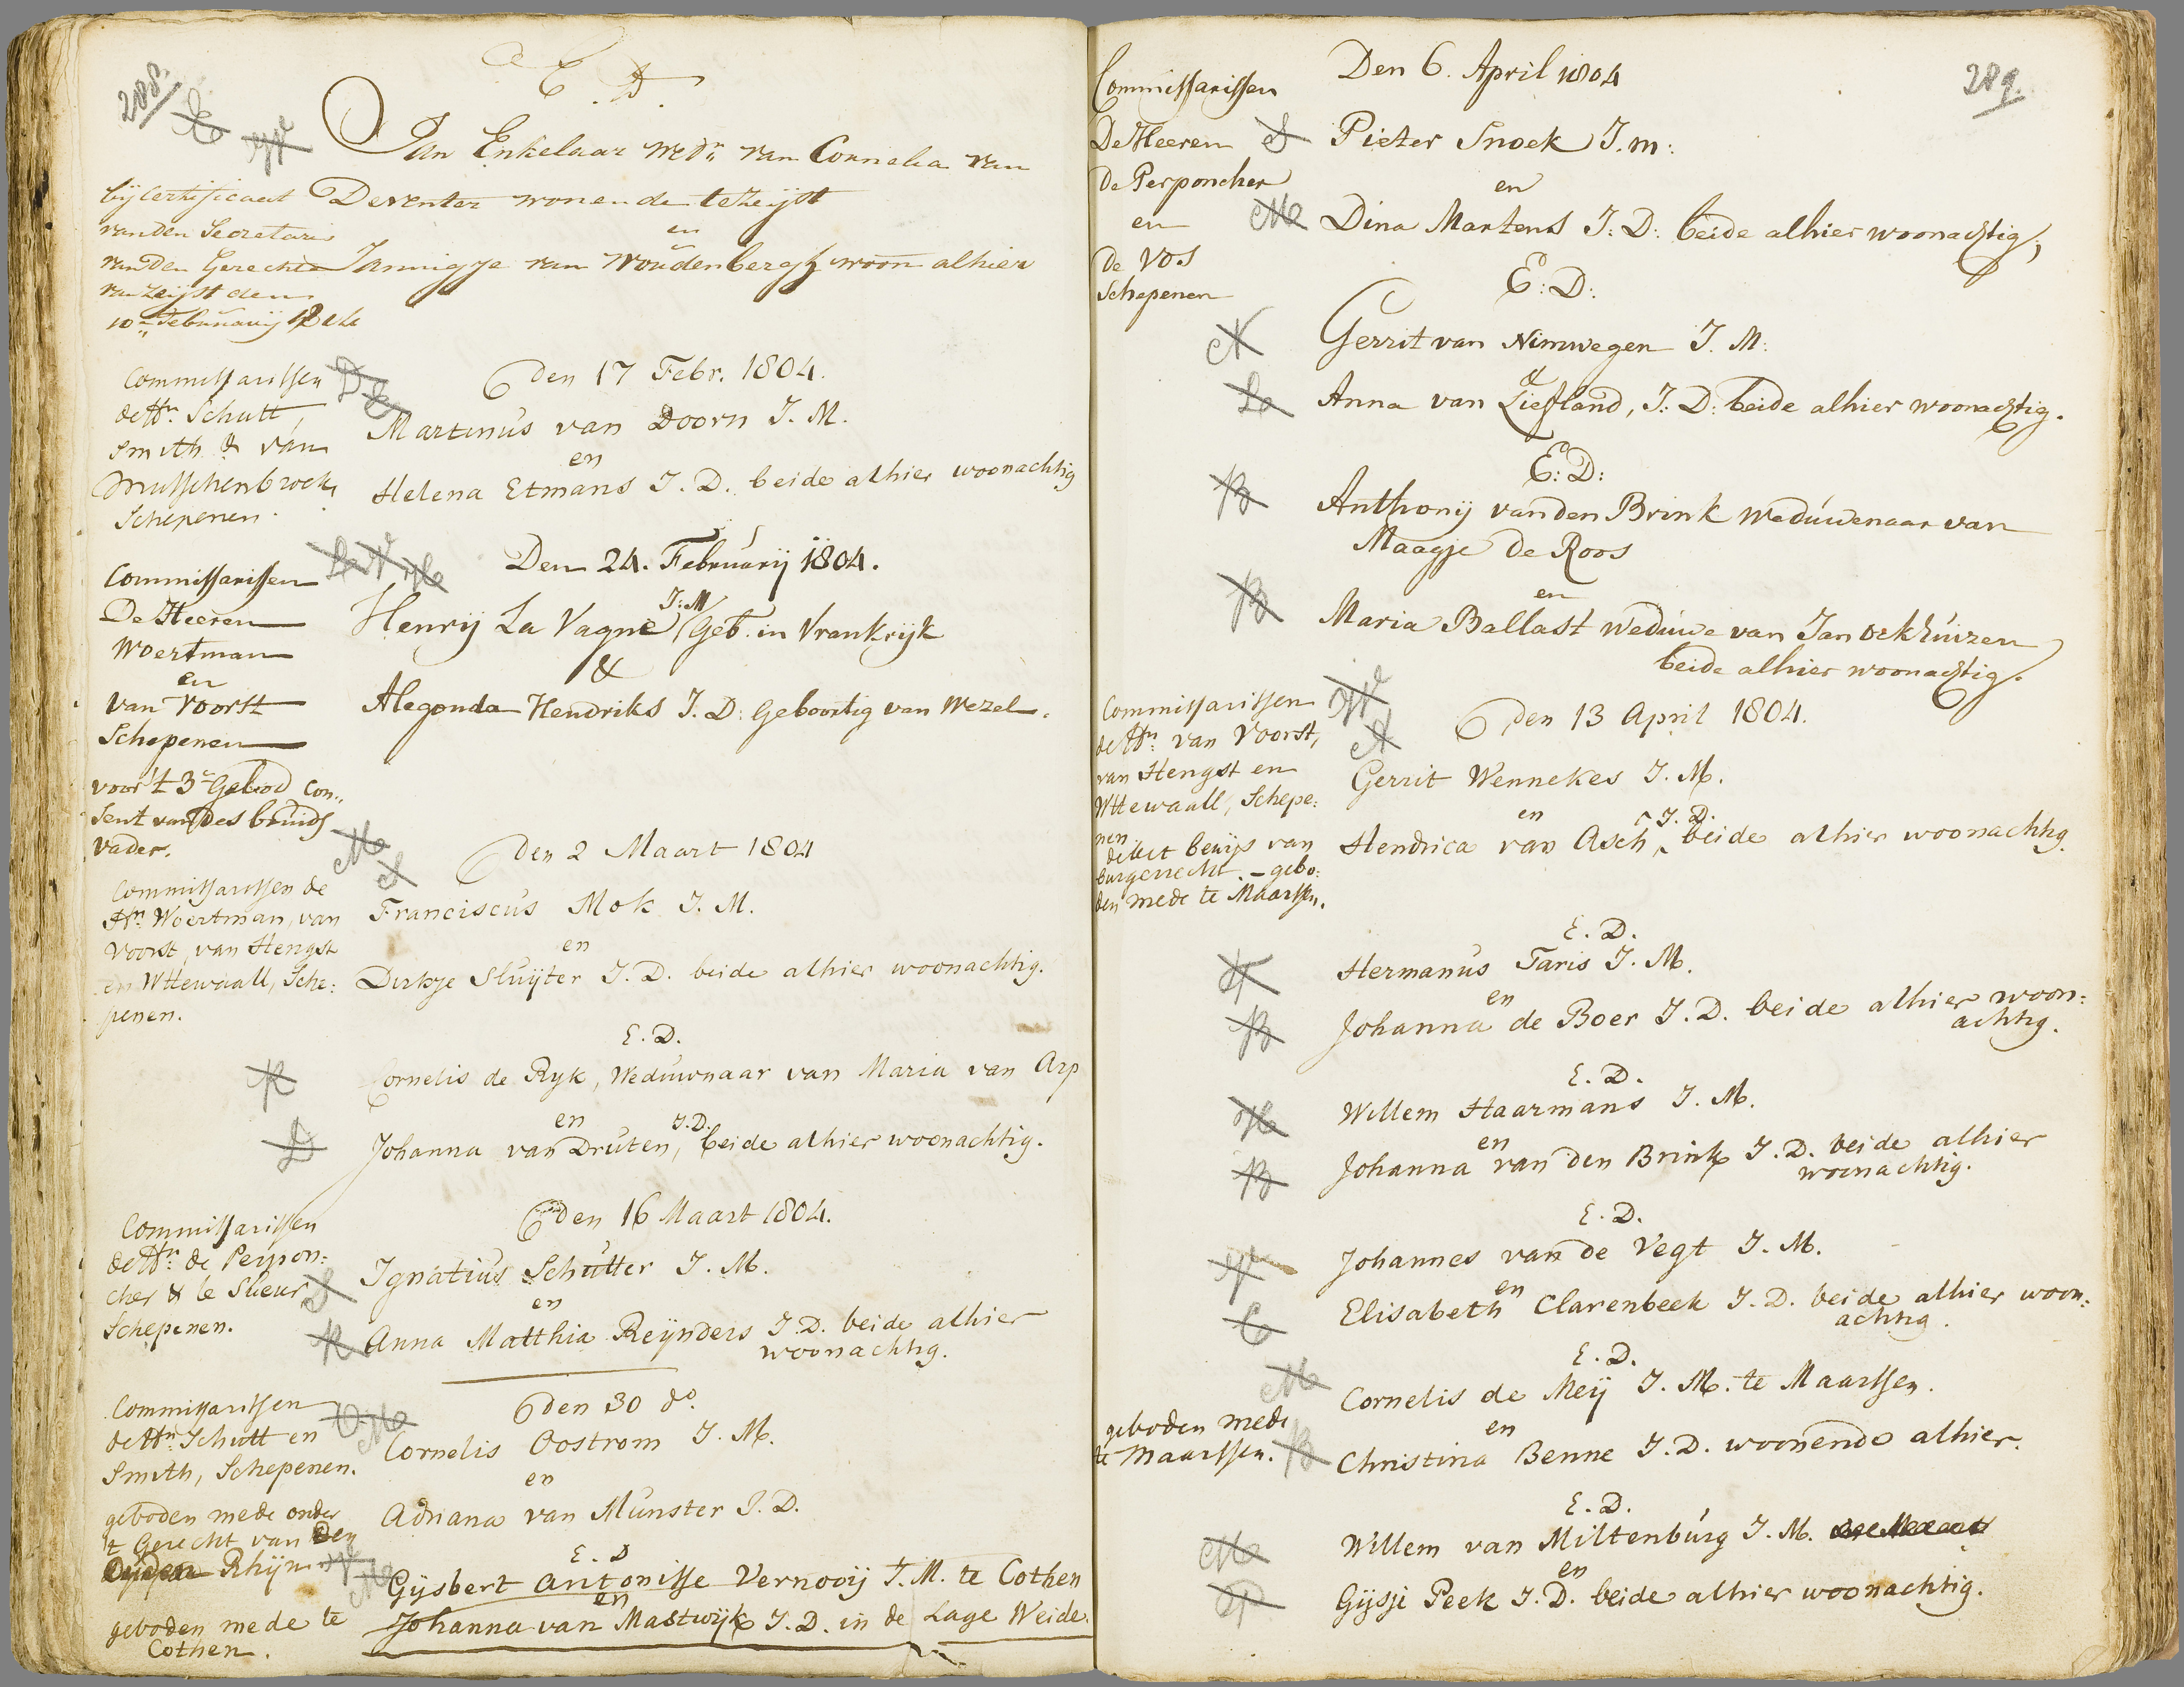 288.
E. D.
Jan Enkelaar Wedr. van Cornelia van
Deventer wonende te Zeijst
en
Jannigje van Woudenbergh woon alhier
bij Certificaat
van den Secretaris
van den Gerechte
van Zeijst den
10e Februarij 1804
den 17 Febr. 1804.
Commissarissen
de Hrn Schutt,
Smith & van
Musschenbroek,
Schepenen.
Martinus van Doorn J. M.
en
Helena Etmans J. D. beide alhier woonachtig
Den 24. Februarij 1804.
Commissarissen
De Heeren
Woertman
en
van Voorst
Schepenen
J: M
Henrij La Vagne / Geb. in Vrankrijk
&
Alegonda Hendriks J. D: Geboortig van Wezel.
voor 't 3e Gebod Con„
sent van des bruids
vader.
den 2 Maart 1804
Commissarissen de
Hrn Woertman, van
Voorst, van Hengst
en Wttewaall, Sche:
penen.
Franciscus Mok J. M.
en
Dirkje Sluijter J. D. beide alhier woonachtig.
E. D.
Cornelis de Ryk, Weduwnaar van Maria van Arp
en J. D.
Johanna van Druten, beide alhier woonachtig.
den 16 Maart 1804.
Commissarissen
de Hrn: de Perpon:
cher & le Sueur
Schepenen.
Ignatius Schutter J. M.
en
Anna Matthia Reijnders J. D. beide alhier
woonachtig.
den 30 do.
Commissarissen
de Hrn: Schutt en
Smith, Schepenen.
Cornelis Oostrom J. M.
en
Adriana van Munster J. D.
geboden mede onder
't Gerecht van Den
Rhijn
E. D
Gijsbert Antonisse Vernooij J. M. te Cothen
en
Johanna van Mastwijk J. D. in de Lage Weide.
geboden mede te
Cothen.
289.
Den 6. April 1804
Commissarissen
De Heeren
de Perponcher
en
de Vos
Schepenen
Pieter Snoek J. m:
en
Dina Martens J: D: beide alhier woonachtig,
E: D:
Gerrit van Nimwegen J. M:
&
Anna van Liefland, J: D: beide alhier woonachtig.
E: D:
Anthonij van den Brink Weduwenaar van
Maagje De Roos
en
Maria Ballast Weduwe van Jan Oekhuizen
beide alhier woonachtig.
den 13 April 1804.
Commissarissen
de Hrn: van Voorst,
van Hengst en
Wttewaall, Schepe:
nen.
Gerrit Wennekes J. M.
en J. D.
Hendrica van Asch, beide alhier woonachtig.
bewijs van
burgerrecht. – gebo:
den mede te Maarssen.
E. D.
Hermanus Taris J. M.
en
Johanna de Boer J. D. beide alhier woon:
achtig.
E. D.
Willem Haarmans J. M.
en
Johanna van den Brink J. D. beide alhier
woonachtig.
E. D.
Johannes van de Vegt J. M.
en
Elisabeth Clarenbeek J. D. beide alhier woon:
achtig.
E. D.
Cornelis de Meij J. M. te Maarssen.
en
Christina Benne J. D. woonende alhier.
geboden mede
te Maarssen.
E. D.
Willem van Miltenburg J. M.
en
Gijsje Peek J. D. beide alhier woonachtig.